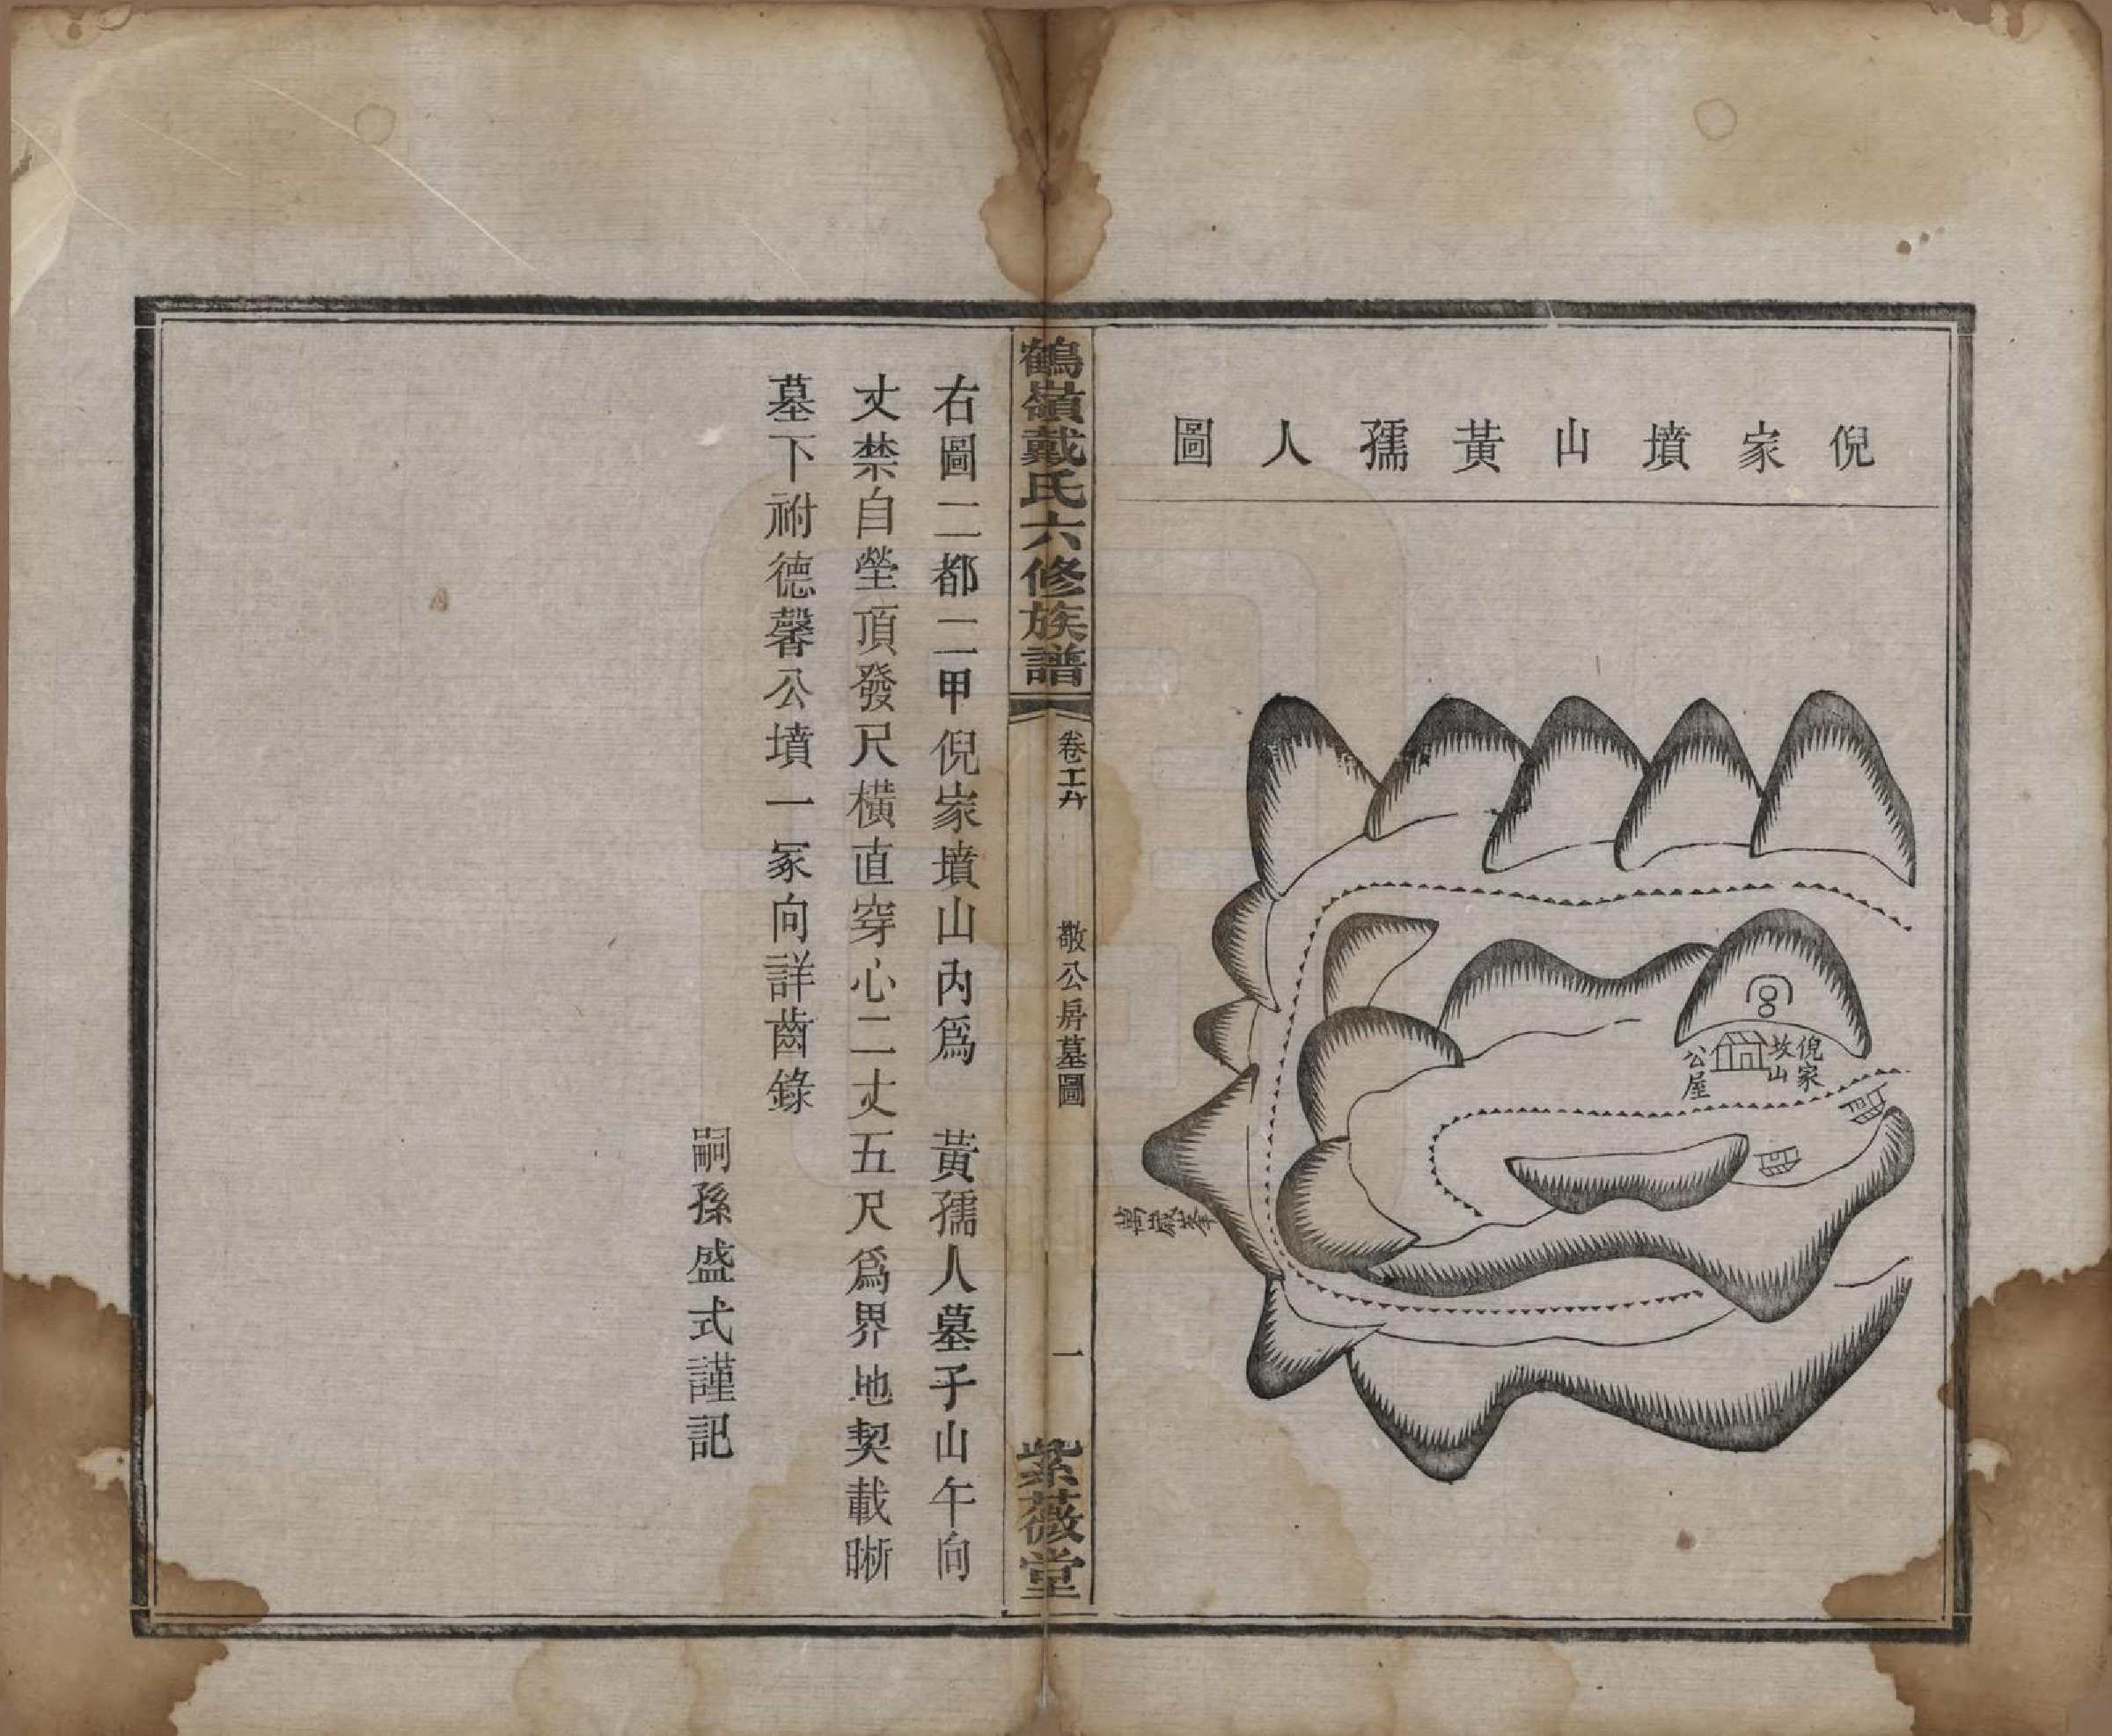 倪家墳山黃孺人圖
倪家
坟山
公屋
鶴嶺戴氏六修族譜
敬公房墓圖
一
紫薇堂
右圖二都二甲倪家墳山內爲 黃孺人墓子山午向
丈禁自塋頂發尺橫直穿心二丈五尺爲界地契載晰
墓下祔德馨公墳一冢向詳齒錄
嗣孫盛式謹記